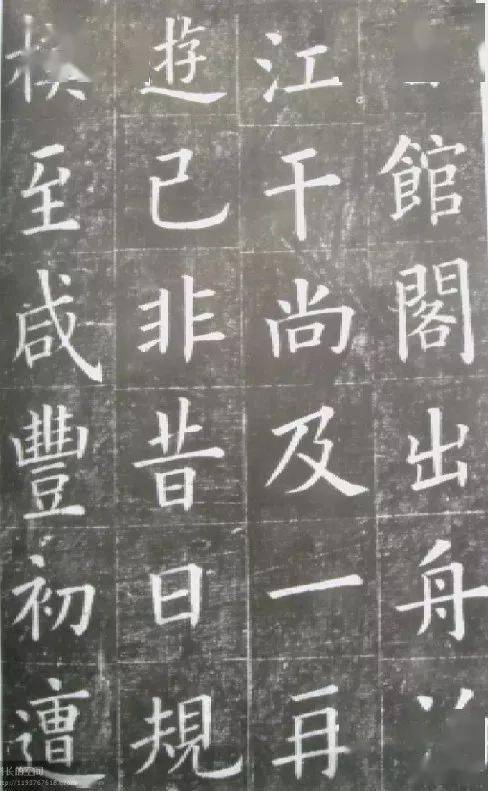 館閣出舟
江干尚及一再
遊已非昔日規
模至咸豐初遭
长的空间